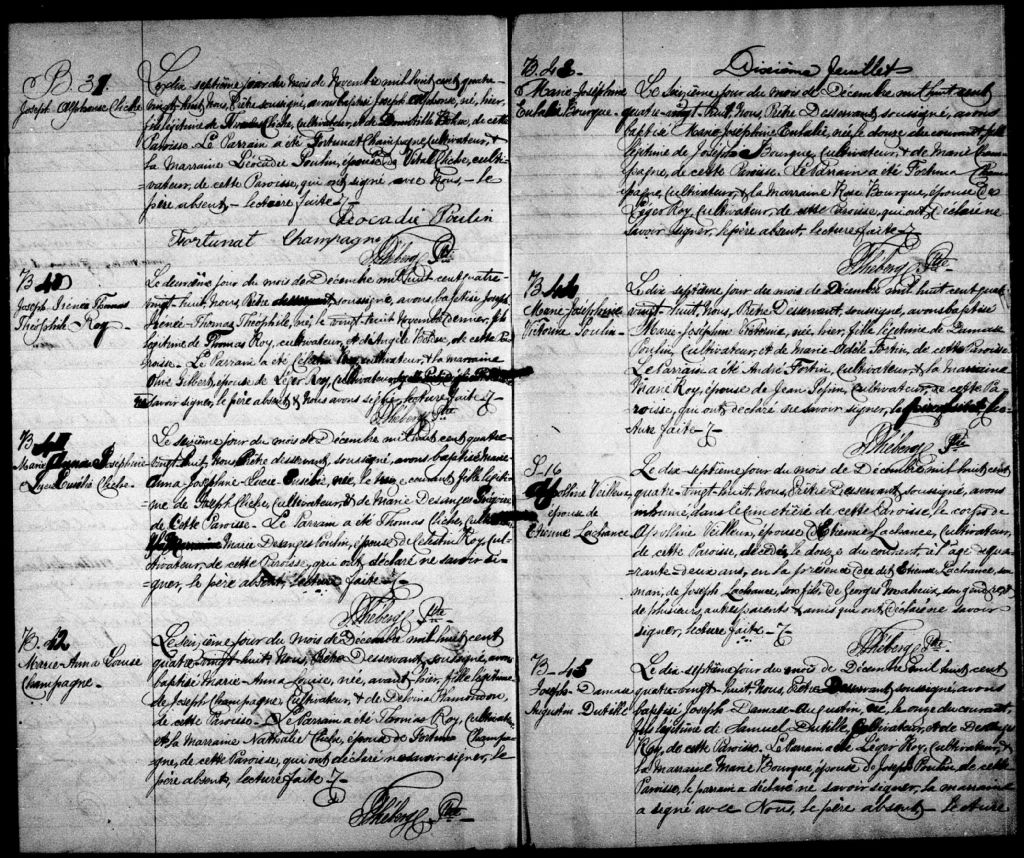 B. 39
Joseph Alphonse Cliche
Le dix septième jour du mois de Novembre mil huit cent quatre-
-vingt-huit, Nous, Prêtre soussigné, avons baptisé Joseph Alphonse, né, hier,
fils légitime de Cliche, Cultivateur, et de de cette
Paroisse. Le Parrain a été Fortunat Champagne, Cultivateur, et
la Marraine Léocadie Poulin, épouse de Vital Cliche, culti-
-vateur, de cette Paroisse, qui ont signé avec Nous, - le
père absent, - lecture faite. -7-
Léocadie Poulin
Fortunat Champagne
Théberge Ptre
B 40
Joseph Irénée Thomas
Théophile Roy
Le deuxième jour du mois de Décembre mil huit cent quatre-
-vingt-huit, Nous, Prêtre soussigné, avons baptisé Joseph
Irénée-Thomas-Théophile, né, le vingt-huit Novembre dernier, fils
légitime de Thomas Roy, Cultivateur, et de Angèle de cette Pa-
-roisse. Le Parrain a été Roy, cultivateur, & la marraine
Olive Gilbert, épouse de Léger Roy, Cultivateur,
savoir signer, le père absent & Nous avons signé, lecture faite -7-
Théberge Ptre
B 41
Marie Anna Joséphine
Lucie Eusébie Cliche.
Le seizième jour du mois de Décembre mil huit cent quatre-
-vingt-huit, Nous, Prêtre desservant, soussigné, avons baptisé Marie-
Anna-Joséphine Lucie-Eusébie, née, le courant, fille légiti-
-me de Joseph Cliche, Cultivateur, & de Marie Desanges
de Cette Paroisse. Le Parrain a été Thomas Cliche,
Marie Desanges Poulin, épouse de Célestin Roy, Cul-
-tivateur, de cette Paroisse, qui ont déclaré ne savoir si-
-gner, le père absent, lecture faite -7-
Théberge Ptre
B. 42
Marie-Anna Louise
Champagne.
Le seizième jour du mois de Décembre mil huit cent
quatre-vingt-huit, Nous, Prêtre Desservant, soussigné, avons
baptisé Marie-Anna-Louise, née, avant-hier, fille légitime
de Joseph Champagne, Cultivateur, & de
de cette Paroisse. Le Parrain a été Thomas Roy, Cultivateur,
et la Marraine Nathalie Cliche, épouse de Fortuna Champa-
-gne, de cette Paroisse, qui ont déclaré ne savoir signer, le
père absent, lecture faite -7-
Théberge Ptre
Dixième feuillet
B. 43 -
Marie Joséphine
Eutalie Bourque.
Le Seizième jour du mois de Décembre mil huit cent
quatre-vingt huit, Nous, Prêtre Desservant soussigné, avons
baptisé Marie Joséphine Eutalie, née, le douze du courant, fille
légitime de Joseph Bourque, Cultivateur, & de Marie Cham-
-pagne, de cette Paroisse. Le Parrain a été Fortuna Cham-
-pagne, cultivateur, & la Marraine Rose Bourque, épouse de
Léger Roy, Cultivateur, de cette Paroisse, qui ont, déclaré ne
savoir signer, le père absent, lecture faite -7-
Théberge Ptre
B 44
Marie Joséphine
Victorine Poulin -
Le dix septième jour du mois de Décembre mil huit cent quatre-
-vingt-huit, Nous, Prêtre Desservant, soussigné, avons baptisé
Marie-Joséphine Victorine, née, hier, fille légitime de Damase
Poulin, Cultivateur, et de Marie-Odile Fortin, de cette Paroisse.
Le Parrain a été André Fortin, Cultivateur, & la marraine
Marie Roy, épouse de Jean Cultivateur, de cette Pa-
-roisse, qui ont déclaré ne savoir signer, lec-
-ture faite -7-
Théberge Ptre
S-16
Apolline Veilleux
épouse de
Etienne Lachance
Le dix septième jour du mois de Décembre mil huit cent
quatre-vingt-huit, Nous, Prêtre Desservant, soussigné, avons
inhumé, dans le cimetière de cette Paroisse, le corps de
Apolline Veilleux, épouse d'Etienne Lachance, Cultivateur,
de cette paroisse, décédée le douze du courent, à l'âge de qua-
-rante-deux ans, en la présence du dit Etienne Lachance, son
mari, de Joseph Lachance, son fils, de Georges Maheux, son gendre, &
de plusieurs, autres parents & amis qui ont déclaré ne savoir
signer, lecture faite -7-
Théberge Ptre
B - 45
Joseph - Damase
Augustin Dutille
Le dix septième jour du mois de Décembre mil huit cent
quatre-vingt-huit, Nous, Prêtre Desservant soussigné, avons
baptisé Joseph Damase-Augustin, né, le onze du courant,
fils légitime de Samuel Dutille, Cultivateur, et de
Roy, de cette Paroisse. Le Parrain a été Léger Roy, Cultivateur, &
la Marraine Marie Bourque, épouse de Joseph Poulin, de cette
Paroisse, le parrain a déclaré ne savoir signer, la marraine
a signé avec Nous, le père absent, - lecture